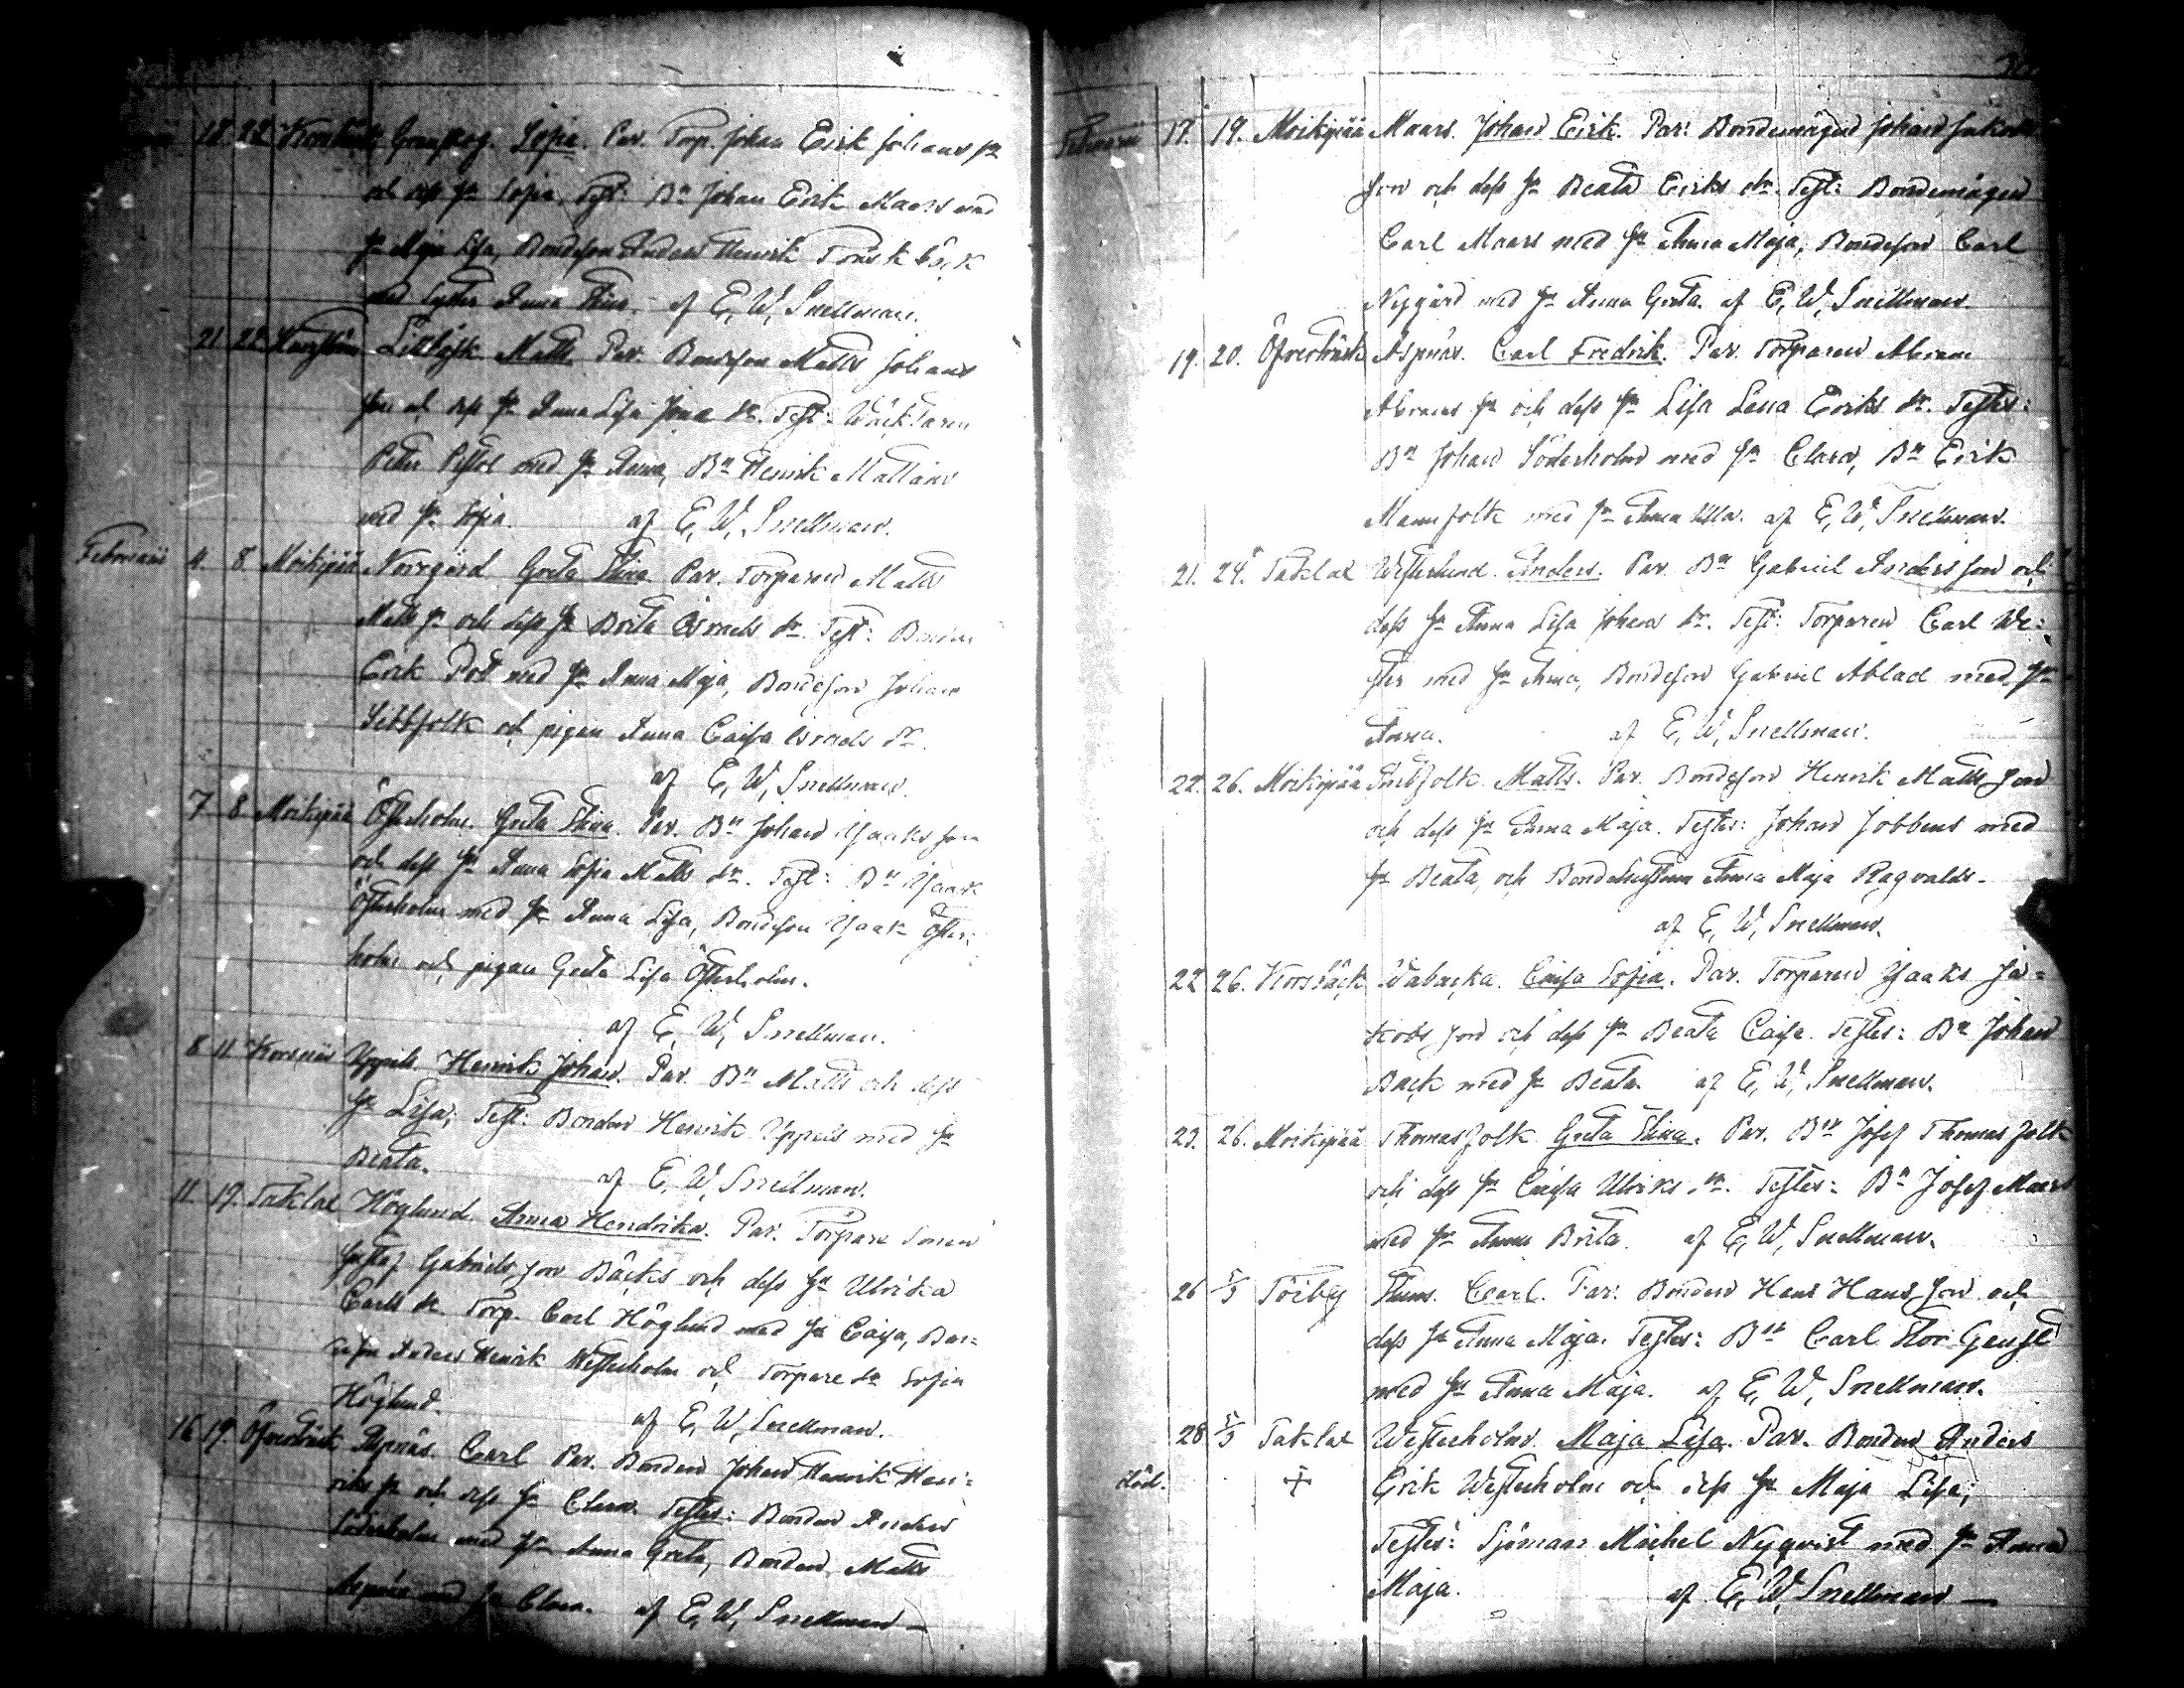 18. 22. Korsbäck Granskog. Sofia. Par. Torp. Johan Erik Johans sn
och dess hu Sofia. Test: Bn Johan Erik Maars med
hu Maja Lisa, Bondeson Anders Henrik
med syster Anna Stina. af E, W, Snellman.
21. 22. Lillbåsk Matts Par. Bondeson Matts Johans
son och dess hu Anna Lisa dr. Test:
Peter med hu Anna, Bn Henrik Mattans
med hu Sofia. af E, W, Snellman.
Februarii 4 8 Moikipää Norrgård Greta Stina. Par. Torparen Matts
Matts sn och dess hu Brita Israels dr. Test: Bonden
Erik Pått med hu Anna Maja, Bondeson Johan
Sebbfolk och pigan Anna Caisa Israels dr.
af E, W, Snellman.
7 8. Moikipää Österholm. Greta Stina. Par. Bn Johan Isaaks son
och dess hu Anna Sofia Matts dr. Test: Bn Isaak
Österholm med hu Anna Lisa, Bondeson Isaak Öster=
holm och pigan Greta Lisa Österholm.
af E, W, Snellman.
8 11 Korsnäs Uppels Henrik Johan. Par. Bn Matts och dess
hu Lisa; Test: Bonden Henrik Uppels med hu
Beata. af E, W, Snellman.
11 19. Taklax Höglund. Anna Hendrika. Par. Torpare Sonen
Gustaf Gabriels son Bäcks och dess hu Ulrika
Carls dr. Torp. Carl Höglund med hu Caisa, Bon=
de son Anders Henrik Westerholm och Torpare dr Sofia
Höglund. af E, W, Snellman.
16 19. Öfverträsk Aspnäs. Carl Par. Bonden Johan Henrik Hen=
riks sn och dess hu Clara. Testes: Bonden Anders
Söderholm med hu Anna Greta, Bonden Matts
Aspnäs med hu Clara. af E, W, Snellman
Februarii 17. 19. Moikipää Maars. Johan Erik. Par: Bondemågen Johan Jakobs
son och dess hu Beata Eriks dr. Test: Bondemågen
Carl Maars med hu Anna Maja, Bondeson Carl
Nygård med hu Anna Greta. af E, W, Snellman.
19. 20. Öfverträsk Aspnäs. Carl Fredrik. Par. Torparen Abram
Abrams sn och dess hu Lisa Lena Eriks dr. Testes:
Bn Johan Söderholm med hu Clara, Bn Erik
Mannfolk med hu Anna Ulla. af E, W, Snellman.
21. 24. Taklax Westerlund. Anders. Par. Bn Gabriel Andersson och
dess hu Anna Lisa Johans dr. Test: Torparen Carl We=
ster med hu Anna, Bondeson Gabriel Ablad med hu
Anna. af E, W, Snellman.
22. 26. Moikipää Matts. Par. Bondeson Henrik Matts son
och dess hu Anna Maja. Testes: Johan Jobbens med
hu Beata, och Bondehustrun Anna Maja Ragvalds.
af E, W, Snellman.
22 26. Korsbäck Wabacka. Caisa Sofia. Par. Torparen Isaaks Ja=
kobs son och dess hu Beata Caisa. Testes: Bn Johan
Back med hu Beata. af E, W, Snellman.
23. 26. Moikipää Thomasfolk Greta Stina. Par. Bn Josef Thomasfolk
och dess hu Caisa Ulriks dr. Testes: Bn Josef Maars
med hu Anna Brita. af E, W, Snellman.
26 5/3 Töiby Carl. Par. Bonden Hans Hans son och
dess hu Anna Maja. Testes: Bn Carl Stor Gengt
med hu Anna Maja. af E, W, Snellman.
28 5/3 Taklax Westerholm. Maja Lisa. Par. Bonden Anders
död. + Erik Westerholm och dess hu Maja Lisa;
Testes: Sjöman Michel Nyqvist med hu Anna
Maja. af E, W, Snellman